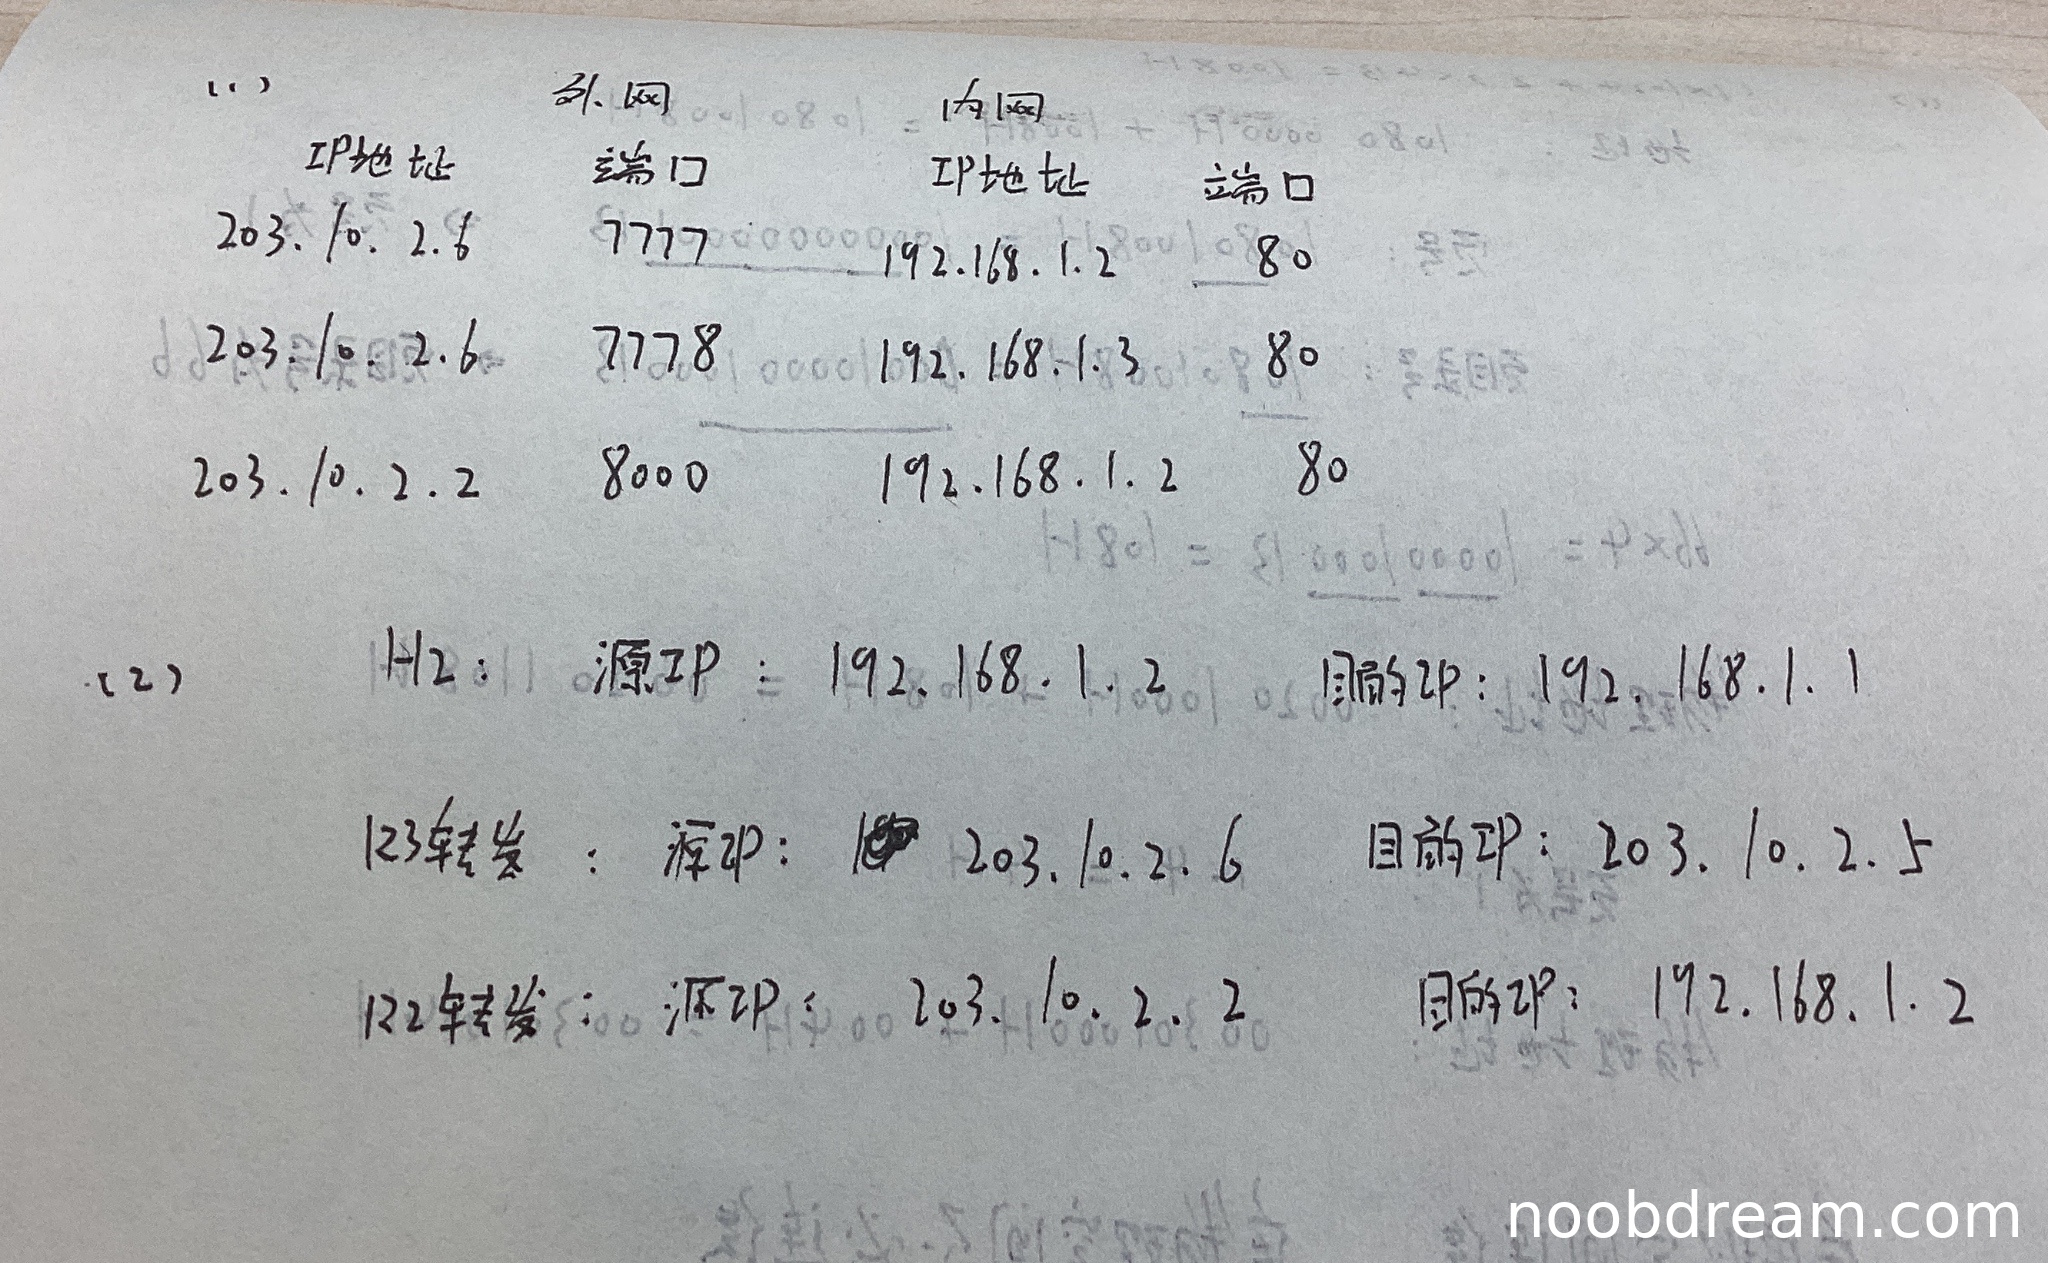 (1) 外网 内网
IP地址 端口 IP地址 端口
203.10.2.6 7777 192.168.1.2 80
203.10.2.6 7778 192.168.1.3 80
203.10.2.2 8000 192.168.1.2 80
(2) H2: 源IP: 192.168.1.2 目的IP: 192.168.1.1
R3转发: 源IP: 203.10.2.6 目的IP: 203.10.2.5
R2转发: 源IP: 203.10.2.2 目的IP: 192.168.1.2
noobdream.com